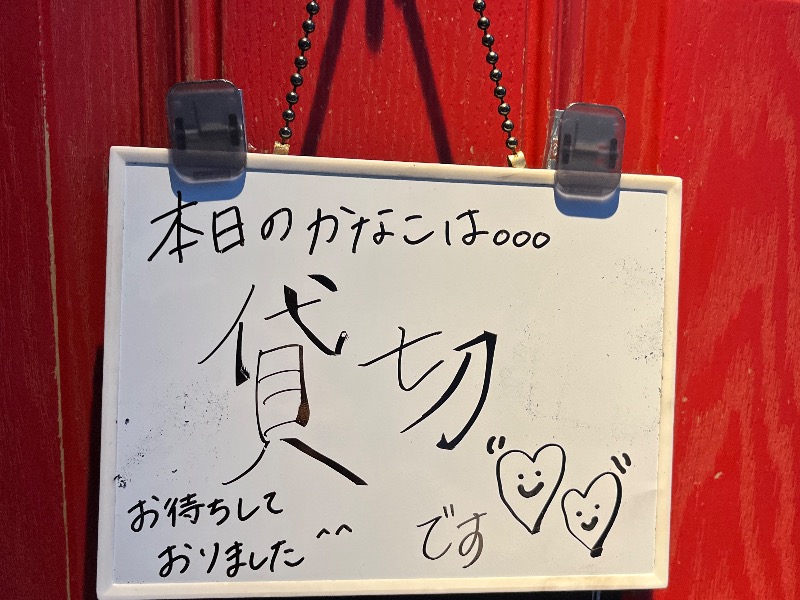 本日のかなこは。。。
貸切
です
お待ちして
おりました^^